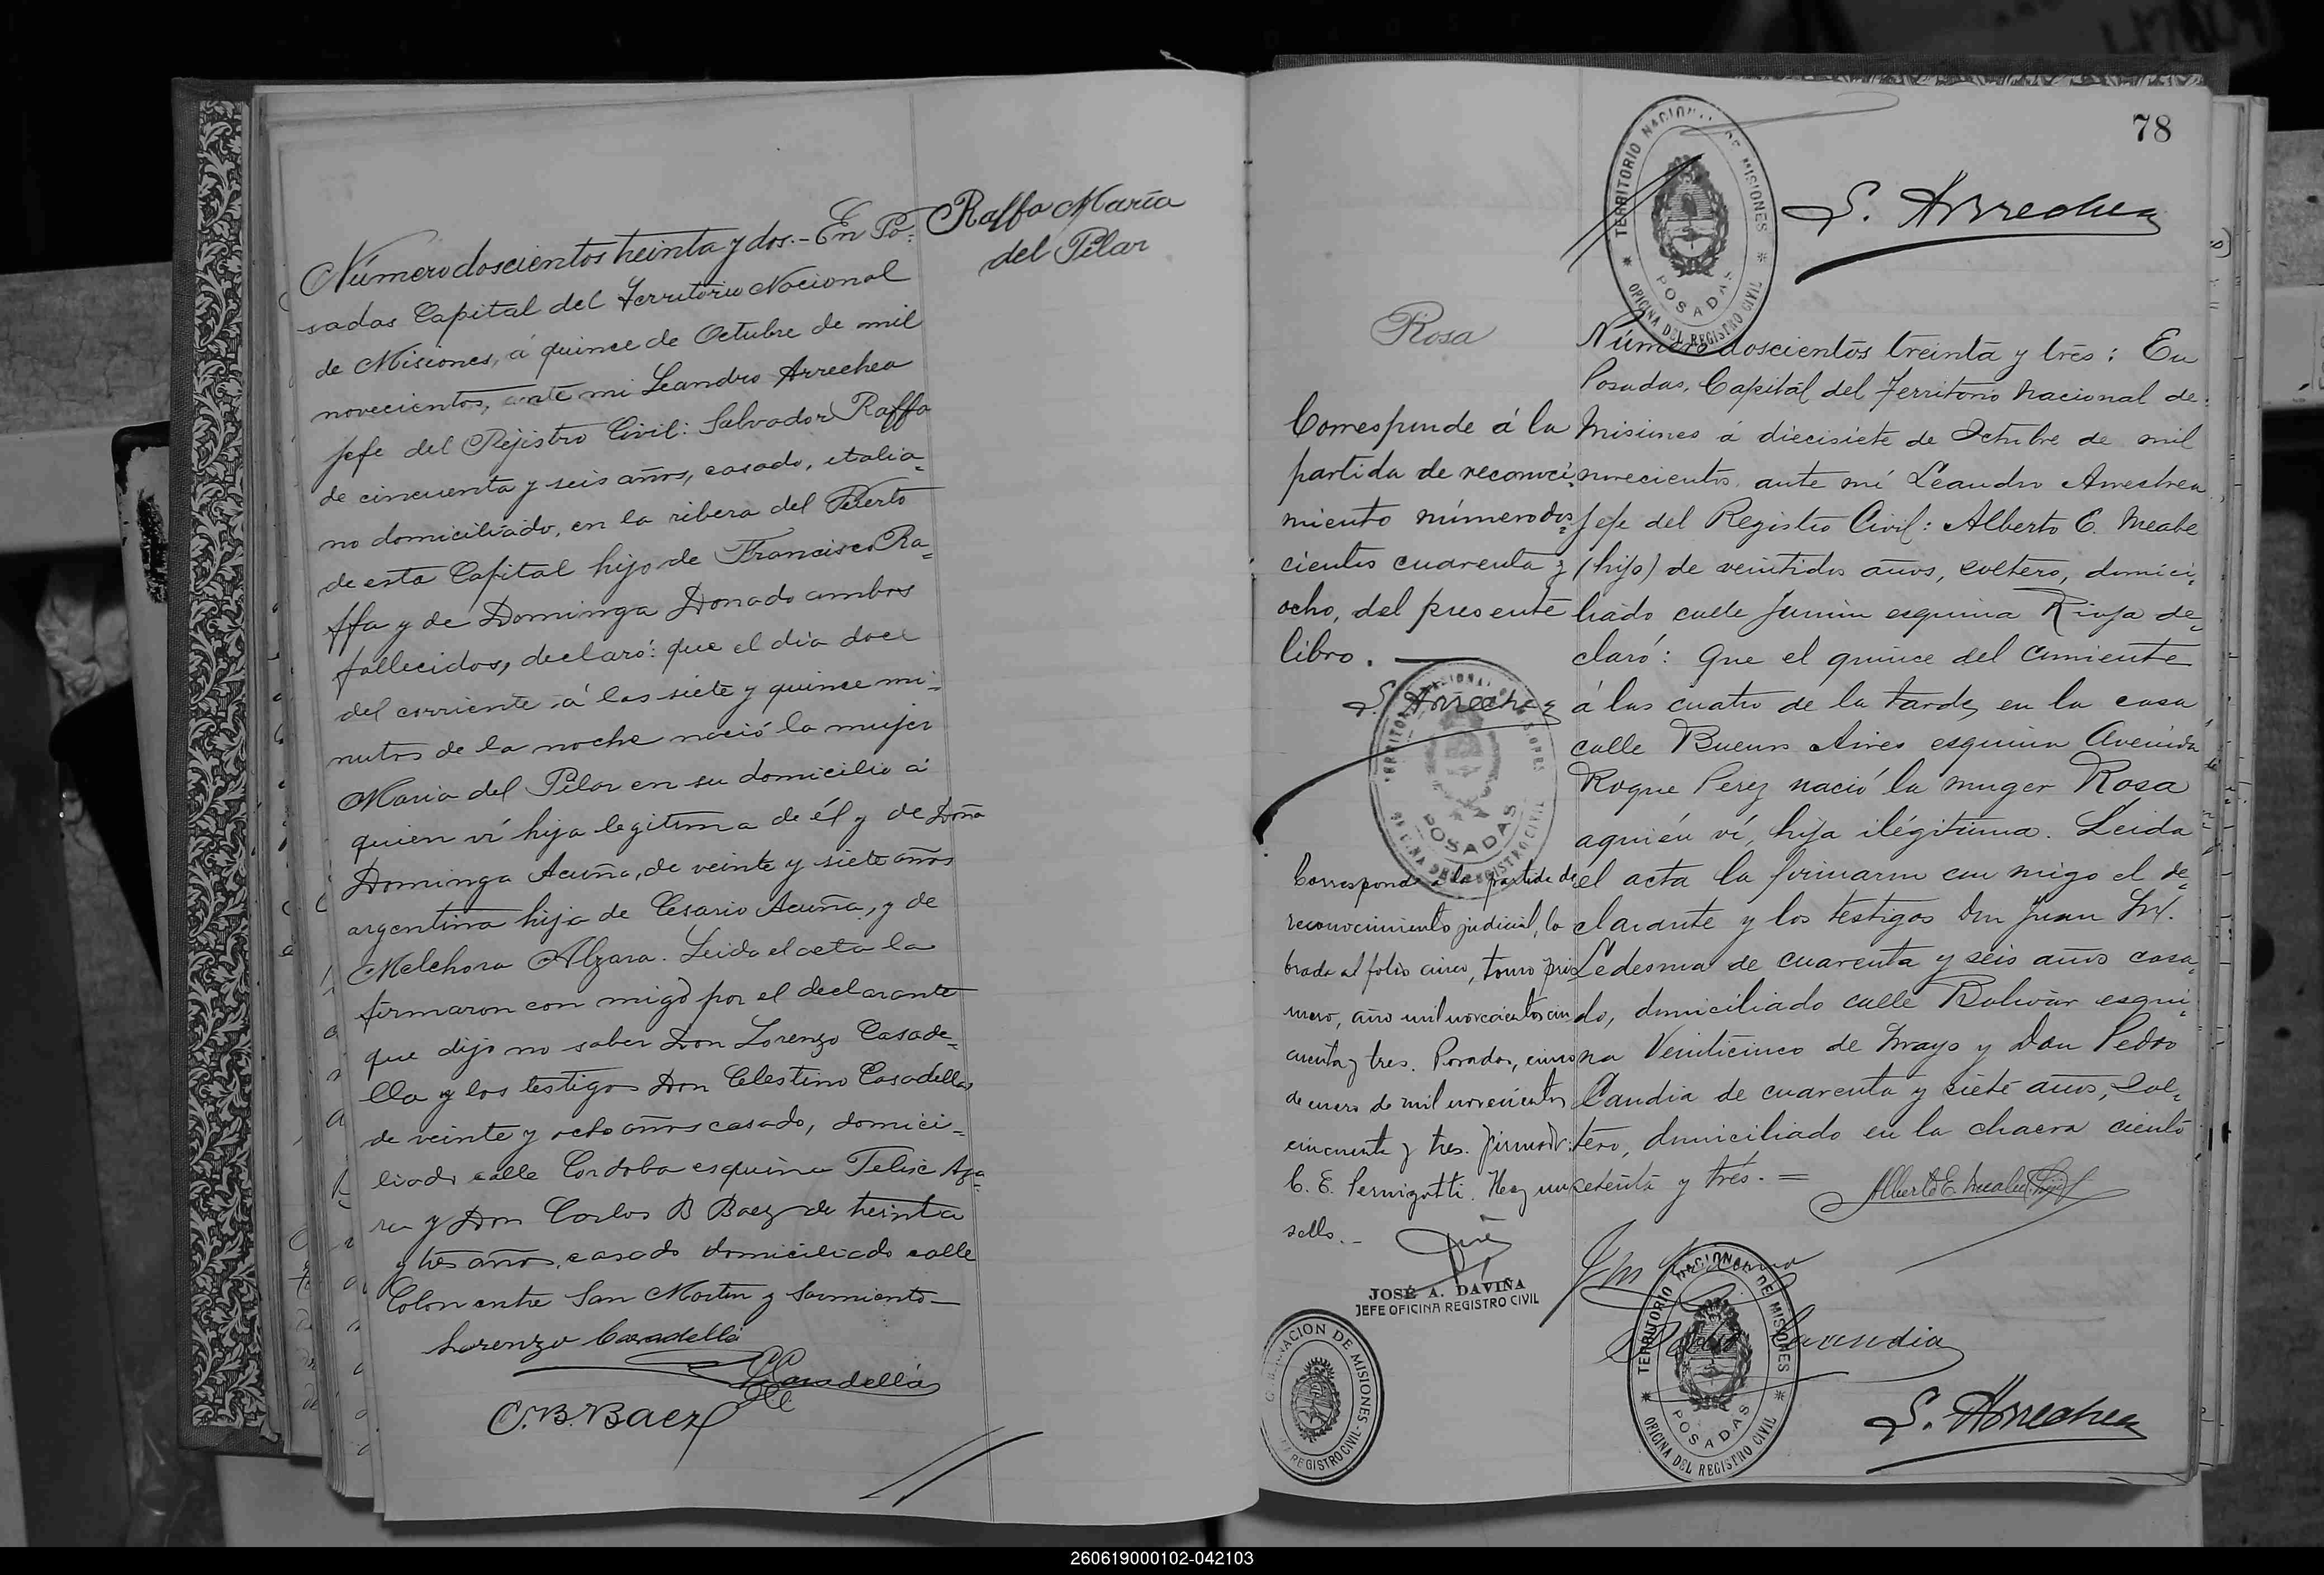 Número doscientos treinta y dos.- En Po-
sadas Capital del Territorio Nacional
de Misiones, á quince de Octubre de mil
novecientos, ante mi Leandro Arrechea
Jefe del Rejistro Civil: Salvador Raffa
de cincuenta y seis años, casado, italia-
no domiciliado, en la ribera del Puerto
de esta Capital hijo de Francisco Ra-
ffa y de Dominga Donado ambos
fallecidos, declaró: que el dia doce
del corriente á las siete y quince mi-
nutos de la noche nació la mujer
Maria del Pilar en su domicilio á
quien ví hija legitima de él y de Doña
Dominga Acuña, de veinte y siete años
argentina hija de Cesario Acuña, y de
Melchora Alzara. Leida el acta la
firmaron con migo por el declarante
que dijo no saber Don Lorenzo Casade-
lla y los testigos Don Celestino Casadella
de veinte y ocho años casado, domici-
liado calle Cordoba esquina Felix Aza-
ra y Don Carlos B Baez de treinta
y tres años, casado domiciliado calle
Colon entre San Martin y Sarmiento-
Lorenzo Casadella
Casadella
C.B.Baez
Raffa María
del Pilar
78
TERRITORIO NACIONAL DE MISIONES
POSADAS
OFICINA DEL REGISTRO CIVIL
L. Arrechea
Rosa
Corresponde á la
partida de reconoci-
miento número dos-
cientos cuarenta y
ocho, del presente
libro.
L. Arrechea
POSADAS
Corresponde a la partida de
reconocimiento judicial, la
brada al folio cinco, tomo pri-
mero, año mil novecientos cin
cuenta y tres. Posadas, cinco
de enero de mil novecientos
cincuenta y tres. Firmado:
C. E. Pernigotti. Hay un
sello.-
JOSÉ A. DAVIÑA
JEFE OFICINA REGISTRO CIVIL
GOBERNACION DE MISIONES
REGISTRO CIVIL
Número doscientos treinta y tres: En
Posadas, Capital del Territorio Nacional de
Misiones á diecisiete de Octubre de mil
novecientos, ante mí Leandro Arrechea
Jefe del Registro Civil: Alberto E. Meabe
(hijo) de veintidos años, soltero, domici-
liado calle Junin esquina Rioja de-
claró: Que el quince del corriente
á las cuatro de la tarde, en la casa
calle Buenos Aires esquina Avenida
Roque Perez nació la muger Rosa
aquién ví, hija ilégitima. Leida
el acta la firmaron con migo el de-
clarante y los testigos Don Juan M.
Ledesma de cuarenta y seis años casa-
do, domiciliado calle Bolivar esqui-
na Veinticinco de Mayo y Don Pedro
Candia de cuarenta y siete años, sol-
tero, domiciliado en la chacra ciento
setenta y trés. =
Alberto E. Meabe (hijo)
TERRITORIO NACIONAL DE MISIONES
POSADAS
OFICINA DEL REGISTRO CIVIL
L. Arrechea
260619000102-042103